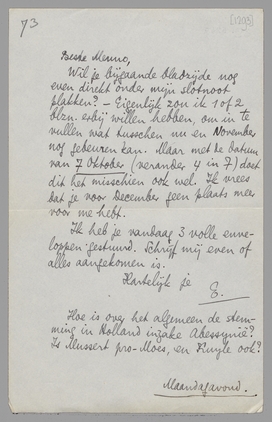 73
[1293]
Beste Menno,
Wil je bijgaande bladzijde nog
even direkt onder mijn slotnoot
plakken? - Eigenlijk zou ik 1 of 2
blzn. erbij willen hebben, om in te
vullen wat tusschen nu en November
nog gebeuren kan. Maar met de datum
van 7 Oktober (verander 4 in 7) doet
dit het misschien ook wel. Ik vrees
dat je voor December geen plaats meer
voor me hebt.
Ik heb je vandaag 3 volle enve-
loppen gestuurd. Schrijf mij even of
alles aangekomen is.
Hartelijk je
E.
Hoe is over het algemeen de stem-
ming in Holland inzake Abessynië?
Is Mussert pro-Moes, en Kuyle ook?
Maandagavond.